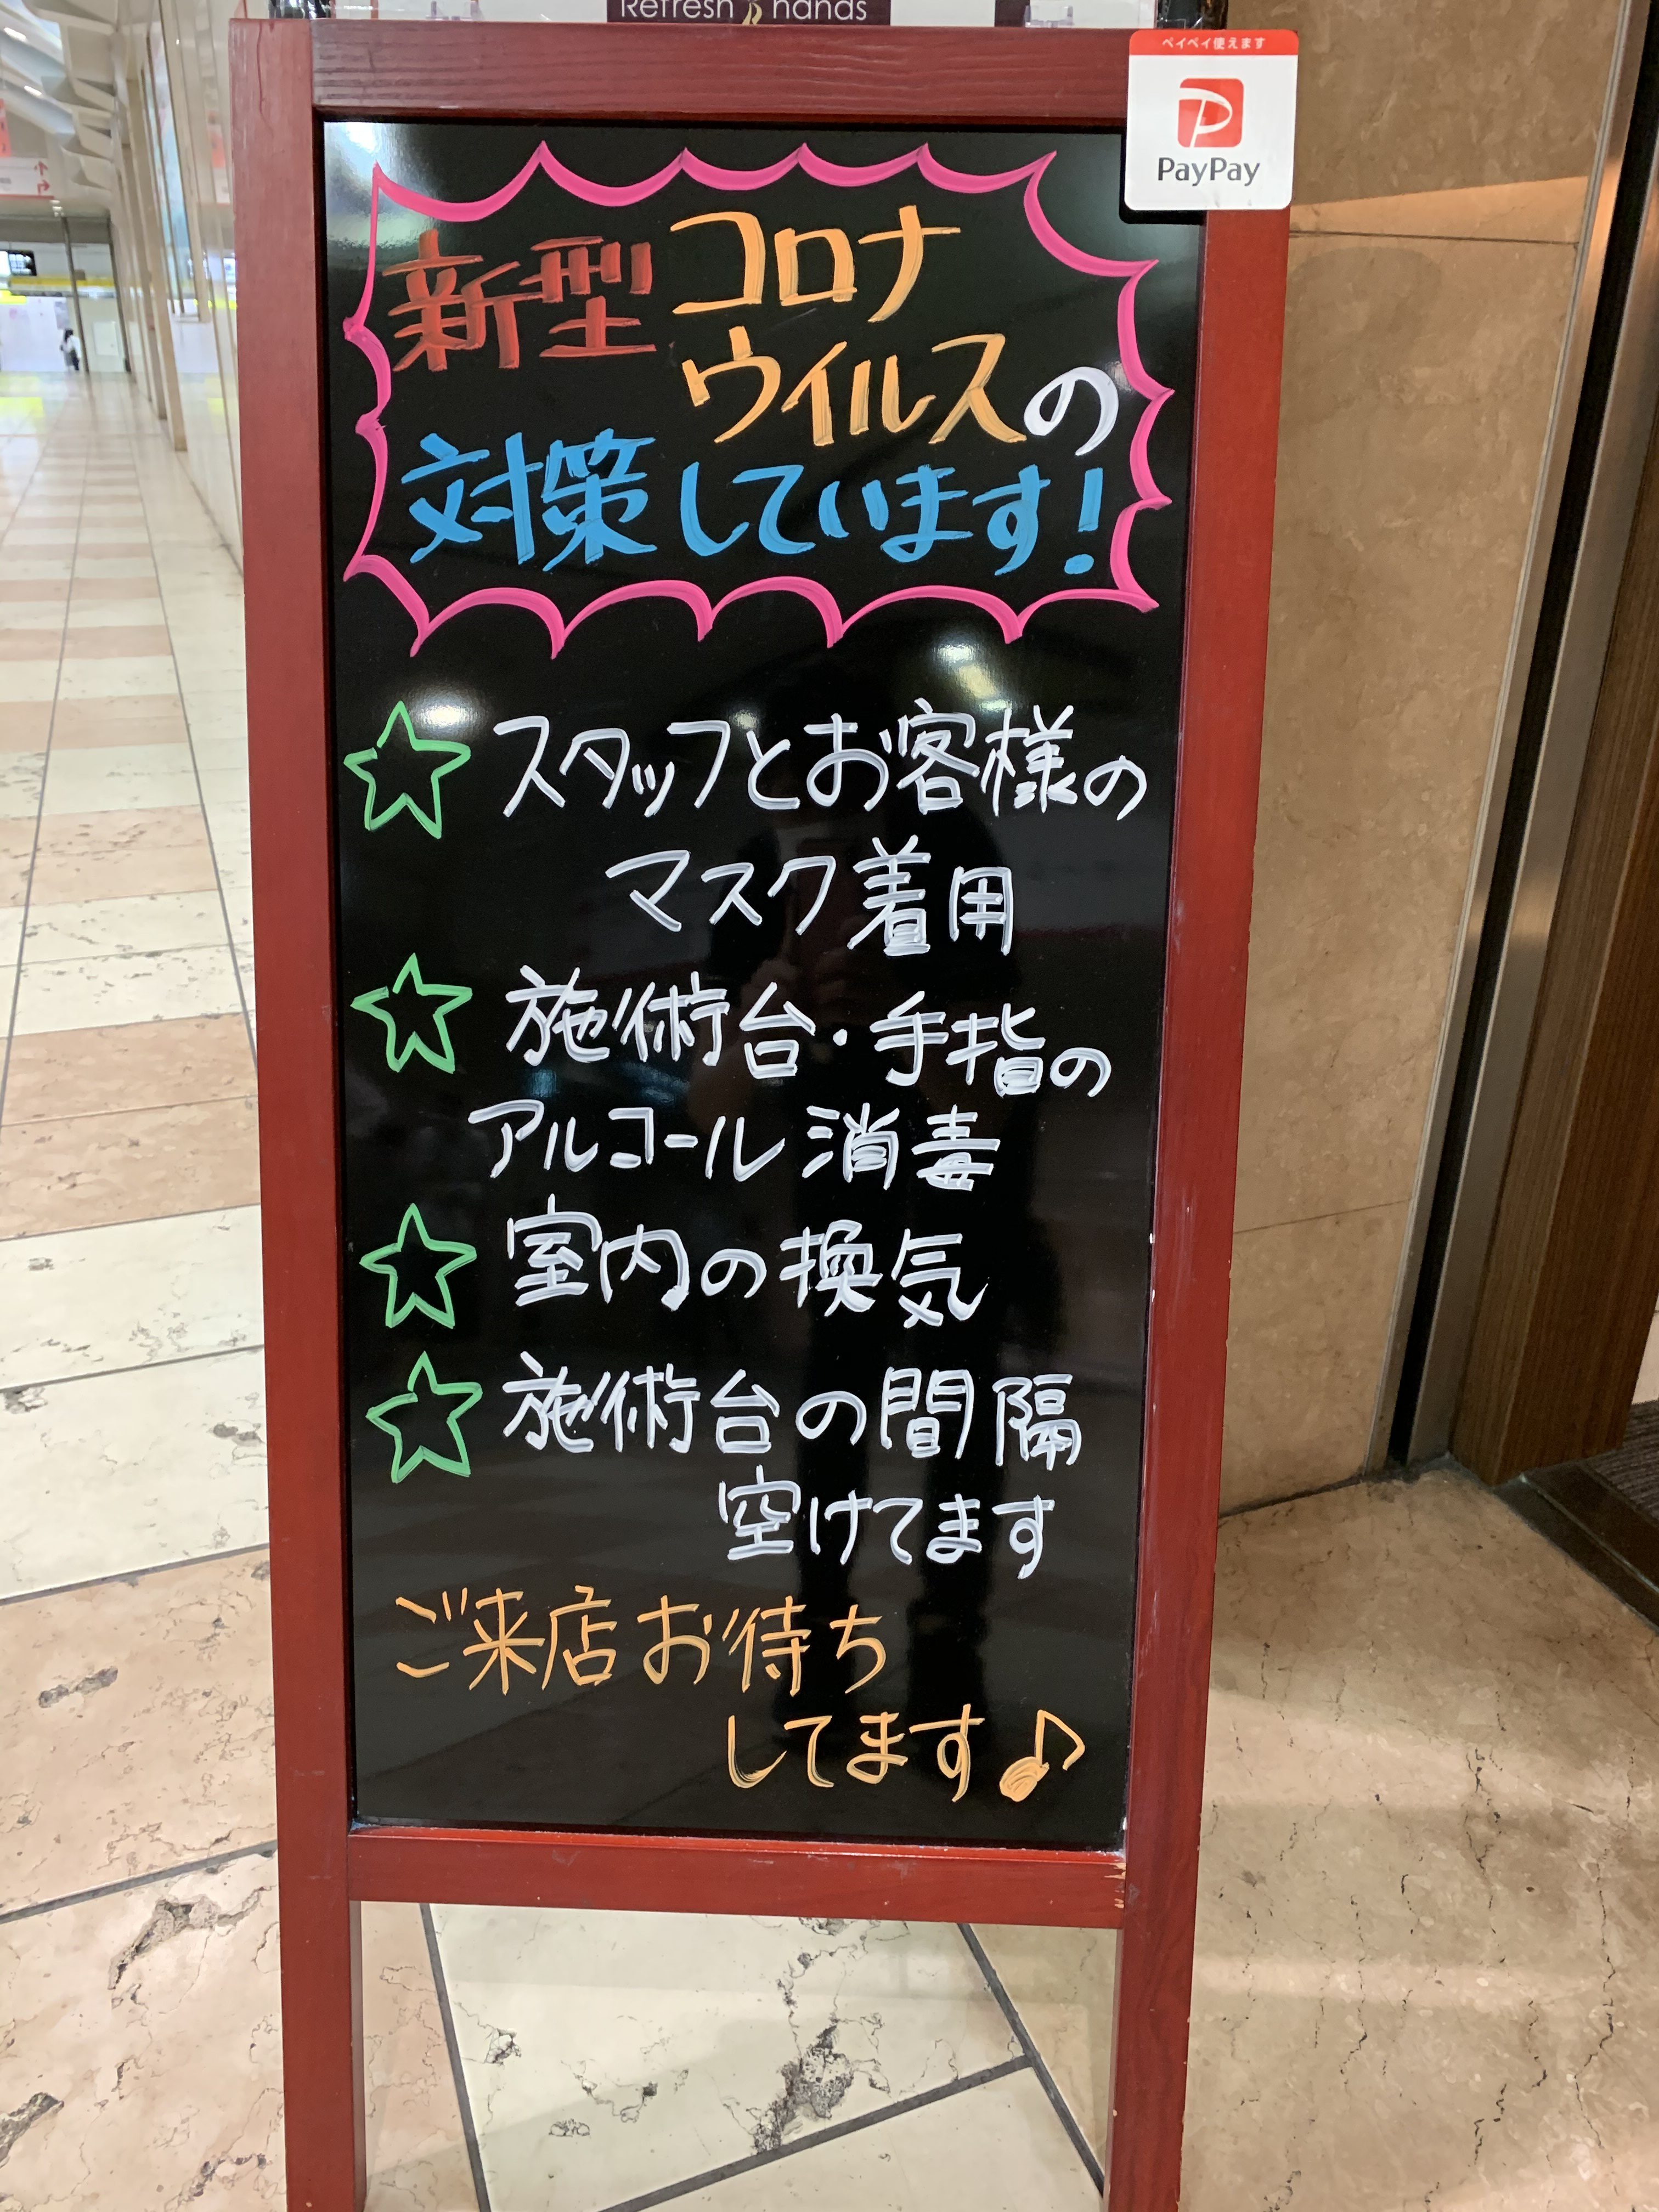 Refresh hands
ペイペイ使えます
PayPay
新型コロナ
ウイルスの
対策しています!
☆スタッフとお客様の
マスク着用
☆施術台・手指の
アルコール消毒
☆室内の換気
☆施術台の間隔
空けてます
ご来店お待ち
してます♪